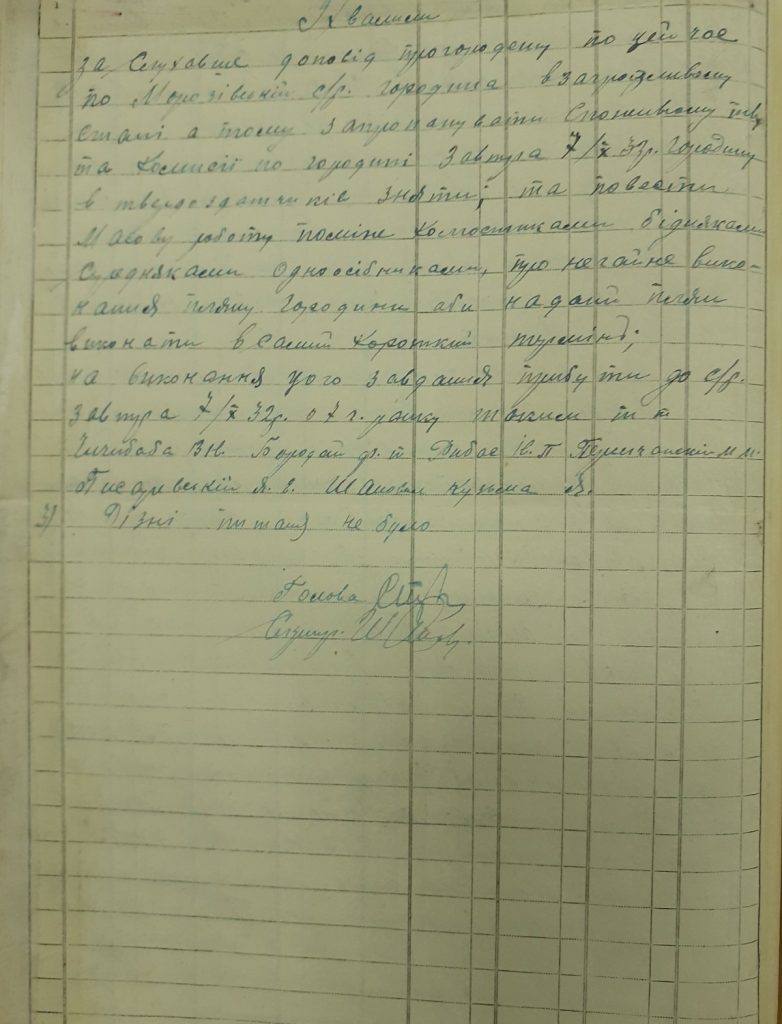 Ухвалили
за Слухавше доповід прогородену по цей час
по Морозівській с/р. городина взагрозливому
стані а тому запропанувати Споживчому тов.
та комисії по городині завтра 7/X 32р. городину
в твердоздатчиків зняти; та повести
масову роботу поміж колгоспниками бідняками
середняками одноосібниками, про негайне вико-
нання пляну городини аби надалі плян
виконати в самий короткий термін;
на виконання цого завдання прибути до с/р.
завтра 7/X 32р. о 7 г. ранку таким т. т.
Чичибаба В Н. Бородай Рибас Ів. П
Писаревський Я. Є. Шаповал Кузьма Я.
3) Різні питаня не було
Голова
Секрит.